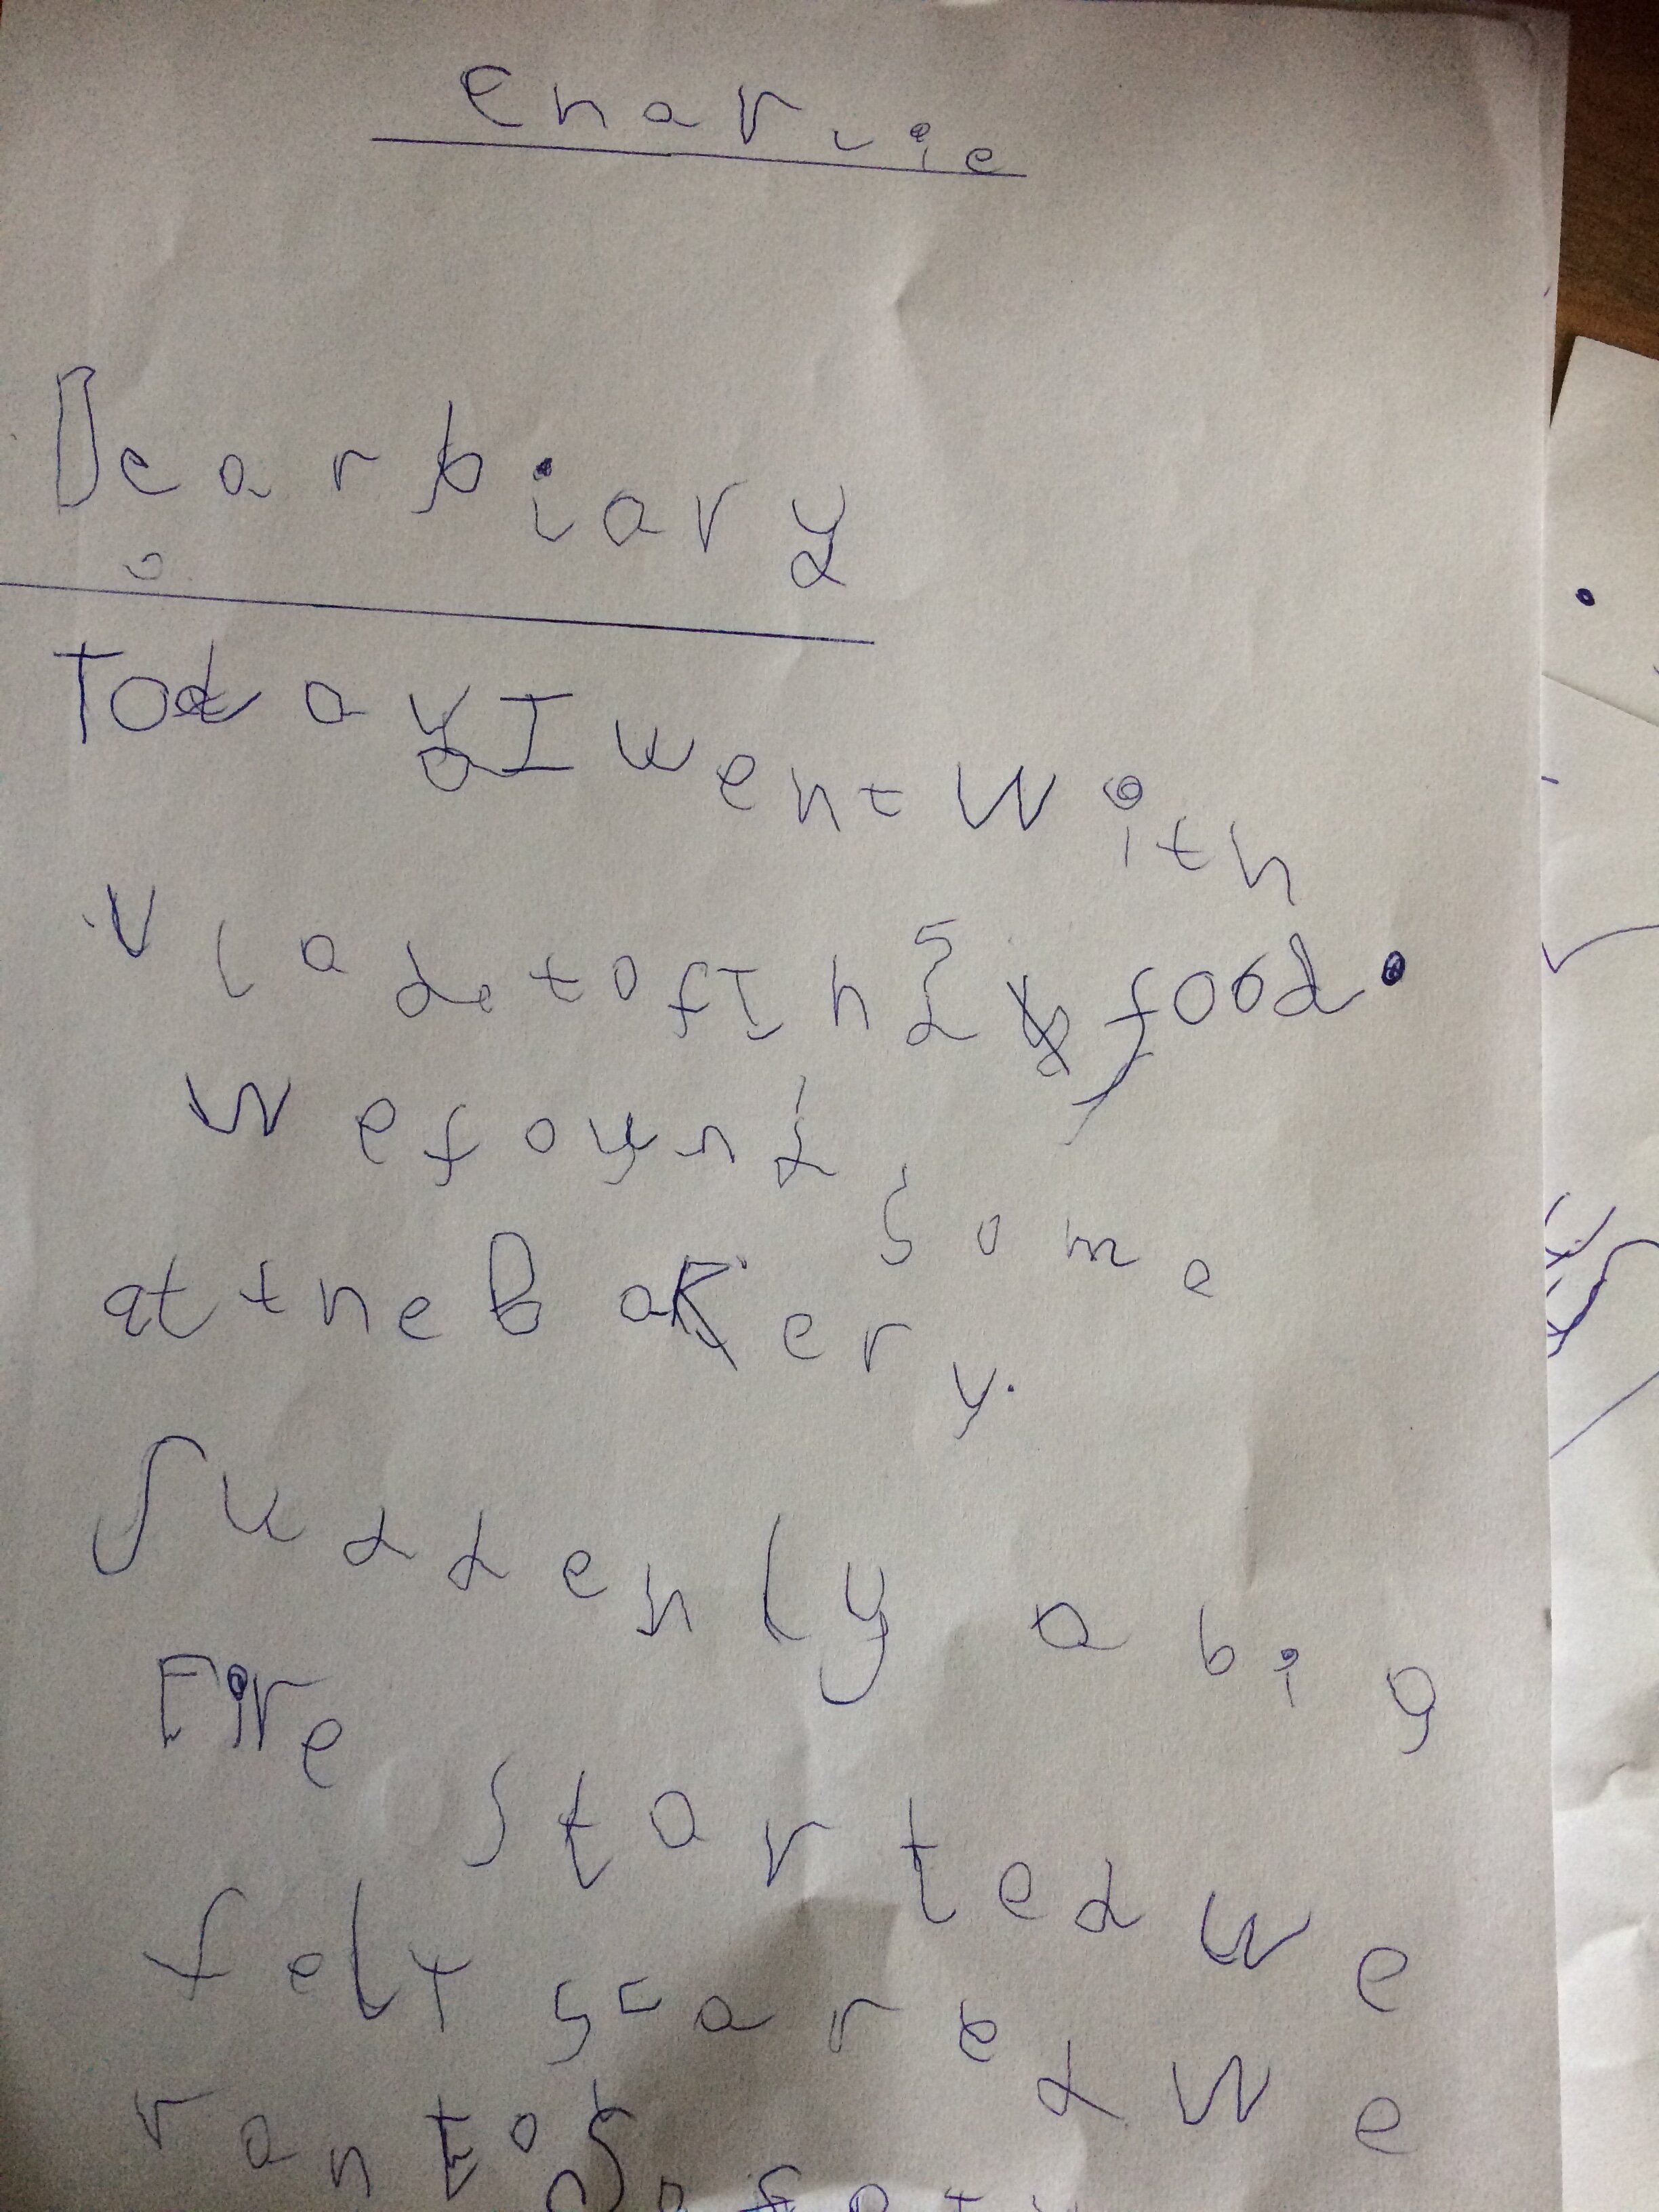 Charlie
Dear Diary
Today I went with
Vlad to find food.
We found some
at the Bakery.
Suddenly a big
Fire started we
felt scared we
ran to safety